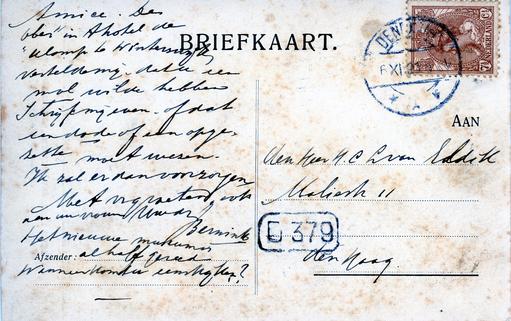 Amice. Der
ober in A hotel de
Klomp te Winterswijk
vertelde mij dat u een
mol wilde hebben
Schrijf mij even of dat
een doode of een opge-
zette moet wezen.
Ik zal er dan voor zorgen
Met vr. groeten, ook
aan uw vrouw
Bernink
Het nieuwe museum is
al half gereed
Wanneer kom je eens kijken?
BRIEFKAART.
Afzender:
6 XI
AAN
den Heer H. C. L. van Eldik
Maliestr 11
D 379
Den Haag.